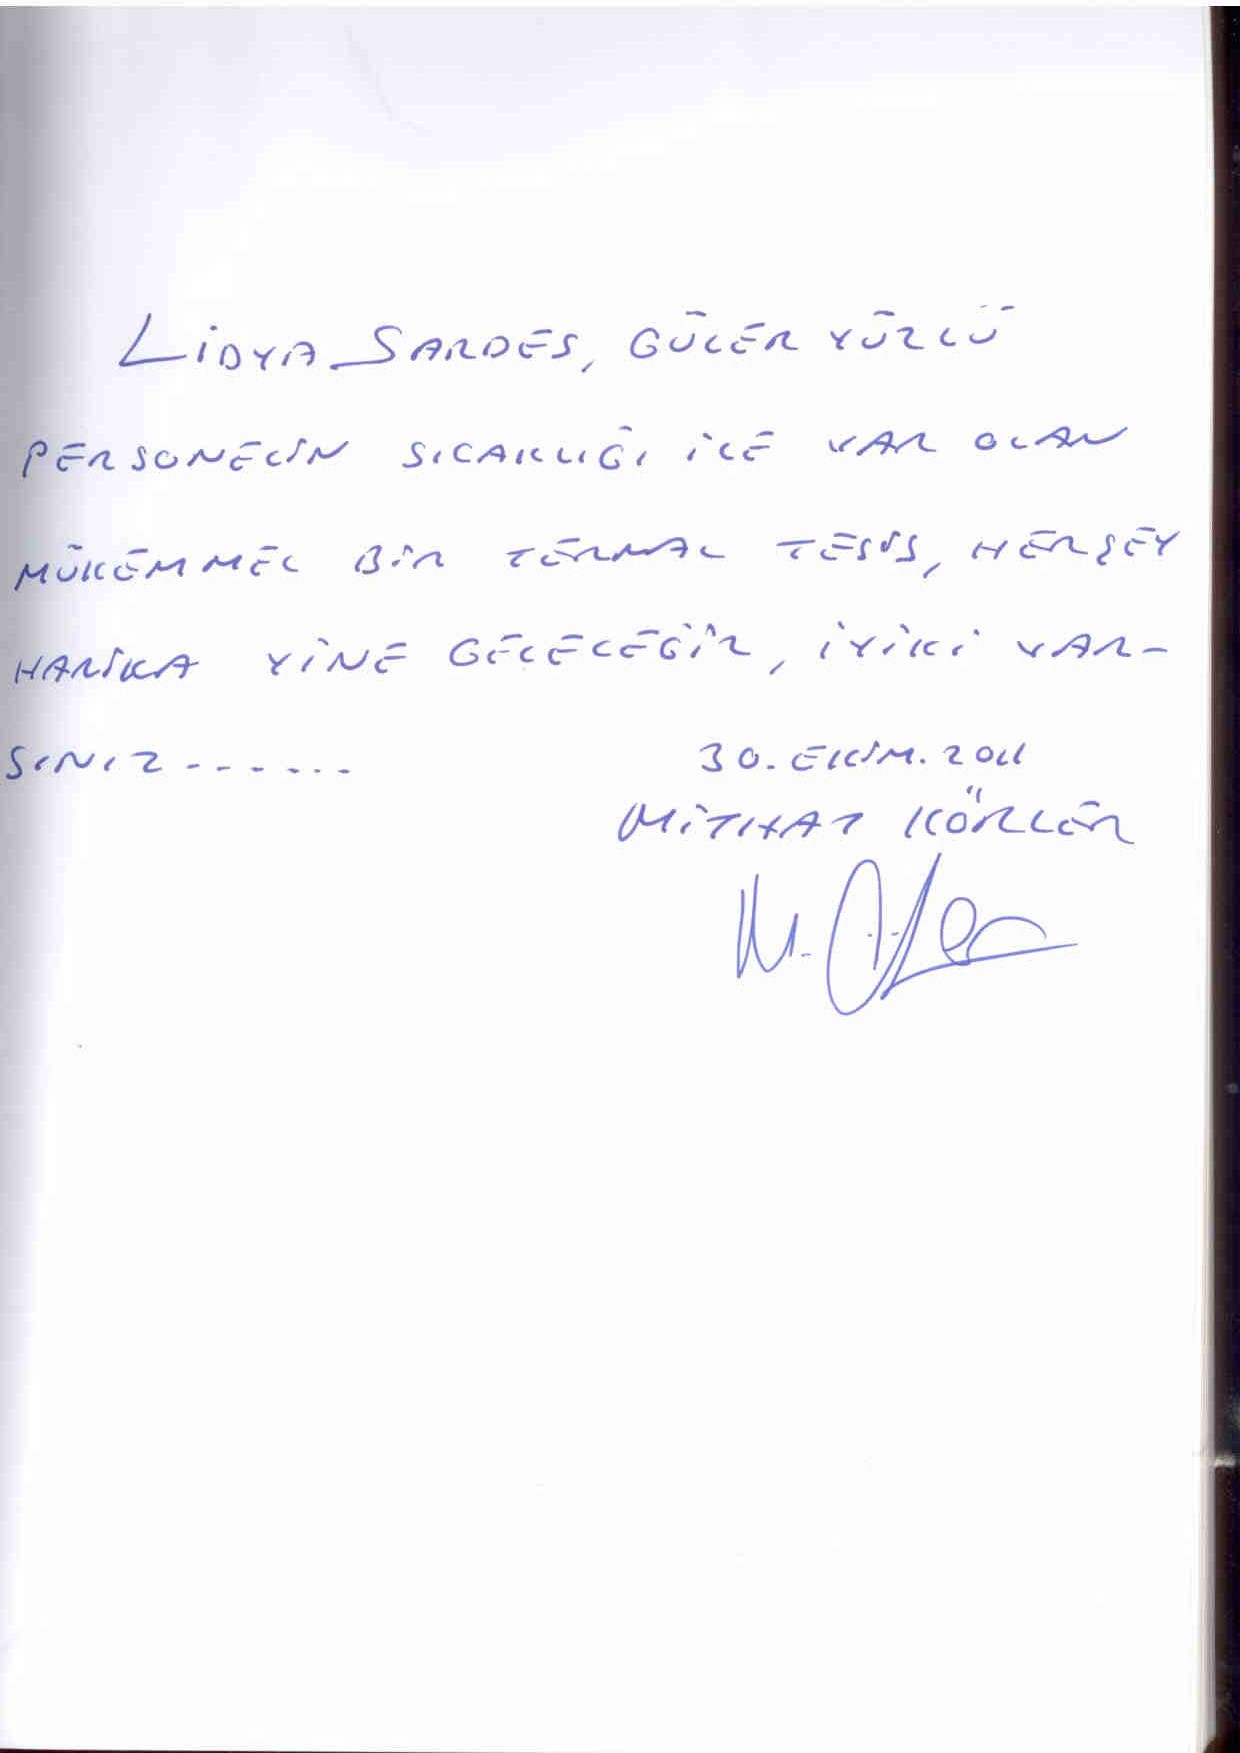 LİDYA SARDES, GÜLER YÜZLÜ
PERSONELİN SICAKLIĞI İLE VAR OLAN
MÜKEMMEL BİR TERMAL TESİS, HERŞEY
HARİKA YİNE GELECEĞİZ, İYİKİ VAR-
SINIZ------
30.EKİM.2011
MİTHAT KÖRLER